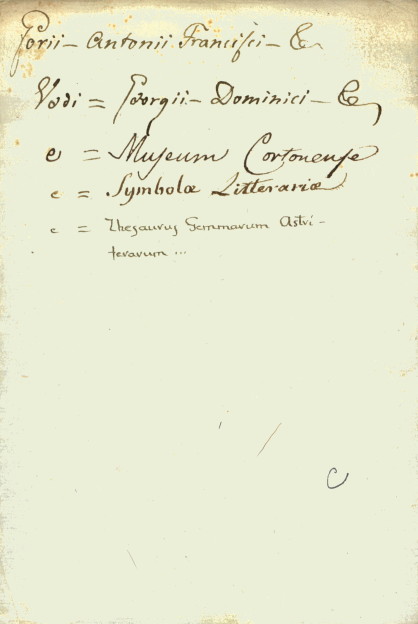 Gorii - Antonii Francisci - &
Vedi = Georgii - Dominici - &
e = Museum Cortonense
e = Symbolæ Litterariæ
e = Thesaurus Gemmarum Astri-
ferarum ...
C